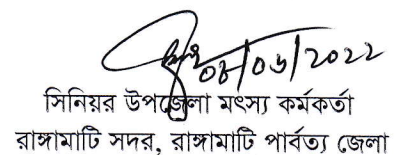 ০৮/০৬/২০২২
সিনিয়র উপজেলা মৎস্য কর্মকর্তা
রাঙ্গামাটি সদর, রাঙ্গামাটি পার্বত্য জেলা